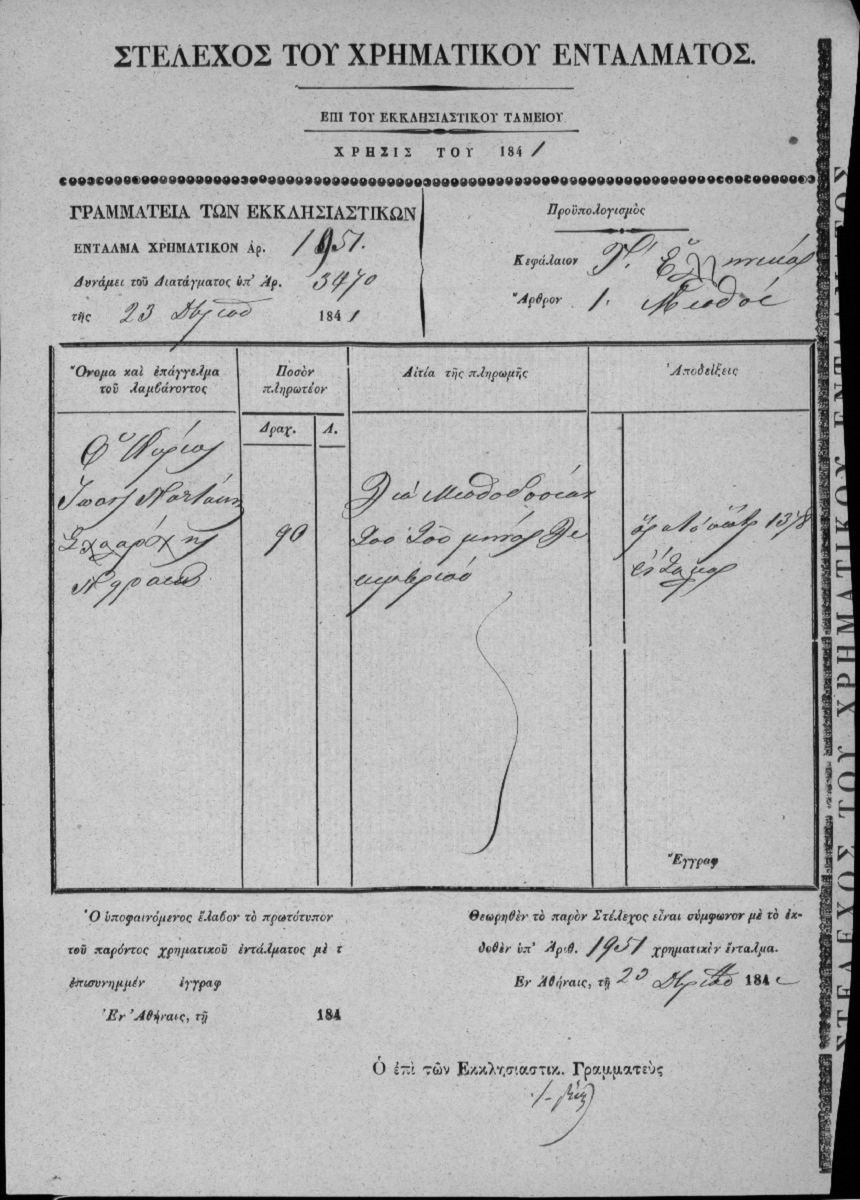 ΣΤΕΛΕΧΟΣ ΤΟΥ ΧΡΗΜΑΤΙΚΟΥ ΕΝΤΑΛΜΑΤΟΣ.
ΕΠΙ ΤΟΥ ΕΚΚΛΗΣΙΑΣΤΙΚΟΥ ΤΑΜΕΙΟΥ
ΧΡΗΣΙΣ ΤΟΥ 1841
ΓΡΑΜΜΑΤΕΙΑ ΤΩΝ ΕΚΚΛΗΣΙΑΣΤΙΚΩΝ
ΕΝΤΑΛΜΑ ΧΡΗΜΑΤΙΚΟΝ Αρ. 1951.
Δυνάμει τοῦ Διατάγματος ὑπ' Ἀρ. 3470
τῆς 23 Δβρίου 1841
Προϋπολογισμὸς
Κεφάλαιον Γ'. Ἑλληνικὰ
Ἄρθρον 1. Μισθοὶ
Ὄνομα καὶ ἐπάγγελμα
τοῦ λαμβάνοντος
Ποσὸν
πληρωτέον
Αἰτία τῆς πληρωμῆς
Ἀποδείξεις
Δραχ. Λ.
Ὁ Κύριος
Σχολάρχης
90
Διὰ Μισθοδοσίαν
του τοῦ μηνὸς Δε
κεμβρίου
Ἔγγραφ
Ὁ ὑποφαινόμενος ἔλαβον τὸ πρωτότυπον
τοῦ παρόντος χρηματικοῦ ἐντάλματος μὲ τ
ἐπισυνημμέν ἐγγραφ
Ἐν Ἀθήναις, τῇ 184
Θεωρηθὲν τὸ παρὸν Στέλεχος εἶναι σύμφωνον μὲ τὸ ἐκ-
δοθὲν ὑπ' Ἀριθ. 1951 χρηματικὸν ἔνταλμα.
Ἐν Ἀθήναις, τῇ 23 Δβρίου 184
Ὁ ἐπὶ τῶν Εκκλησιαστικ. Γραμματεὺς
ΣΤΕΛΕΧΟΣ ΤΟΥ ΧΡΗΜΑΤΙΚΟΥ ΕΝΤΑΛΜΑΤΟΣ